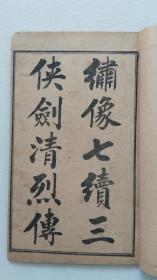 繡像七續三
侠劍清烈傳